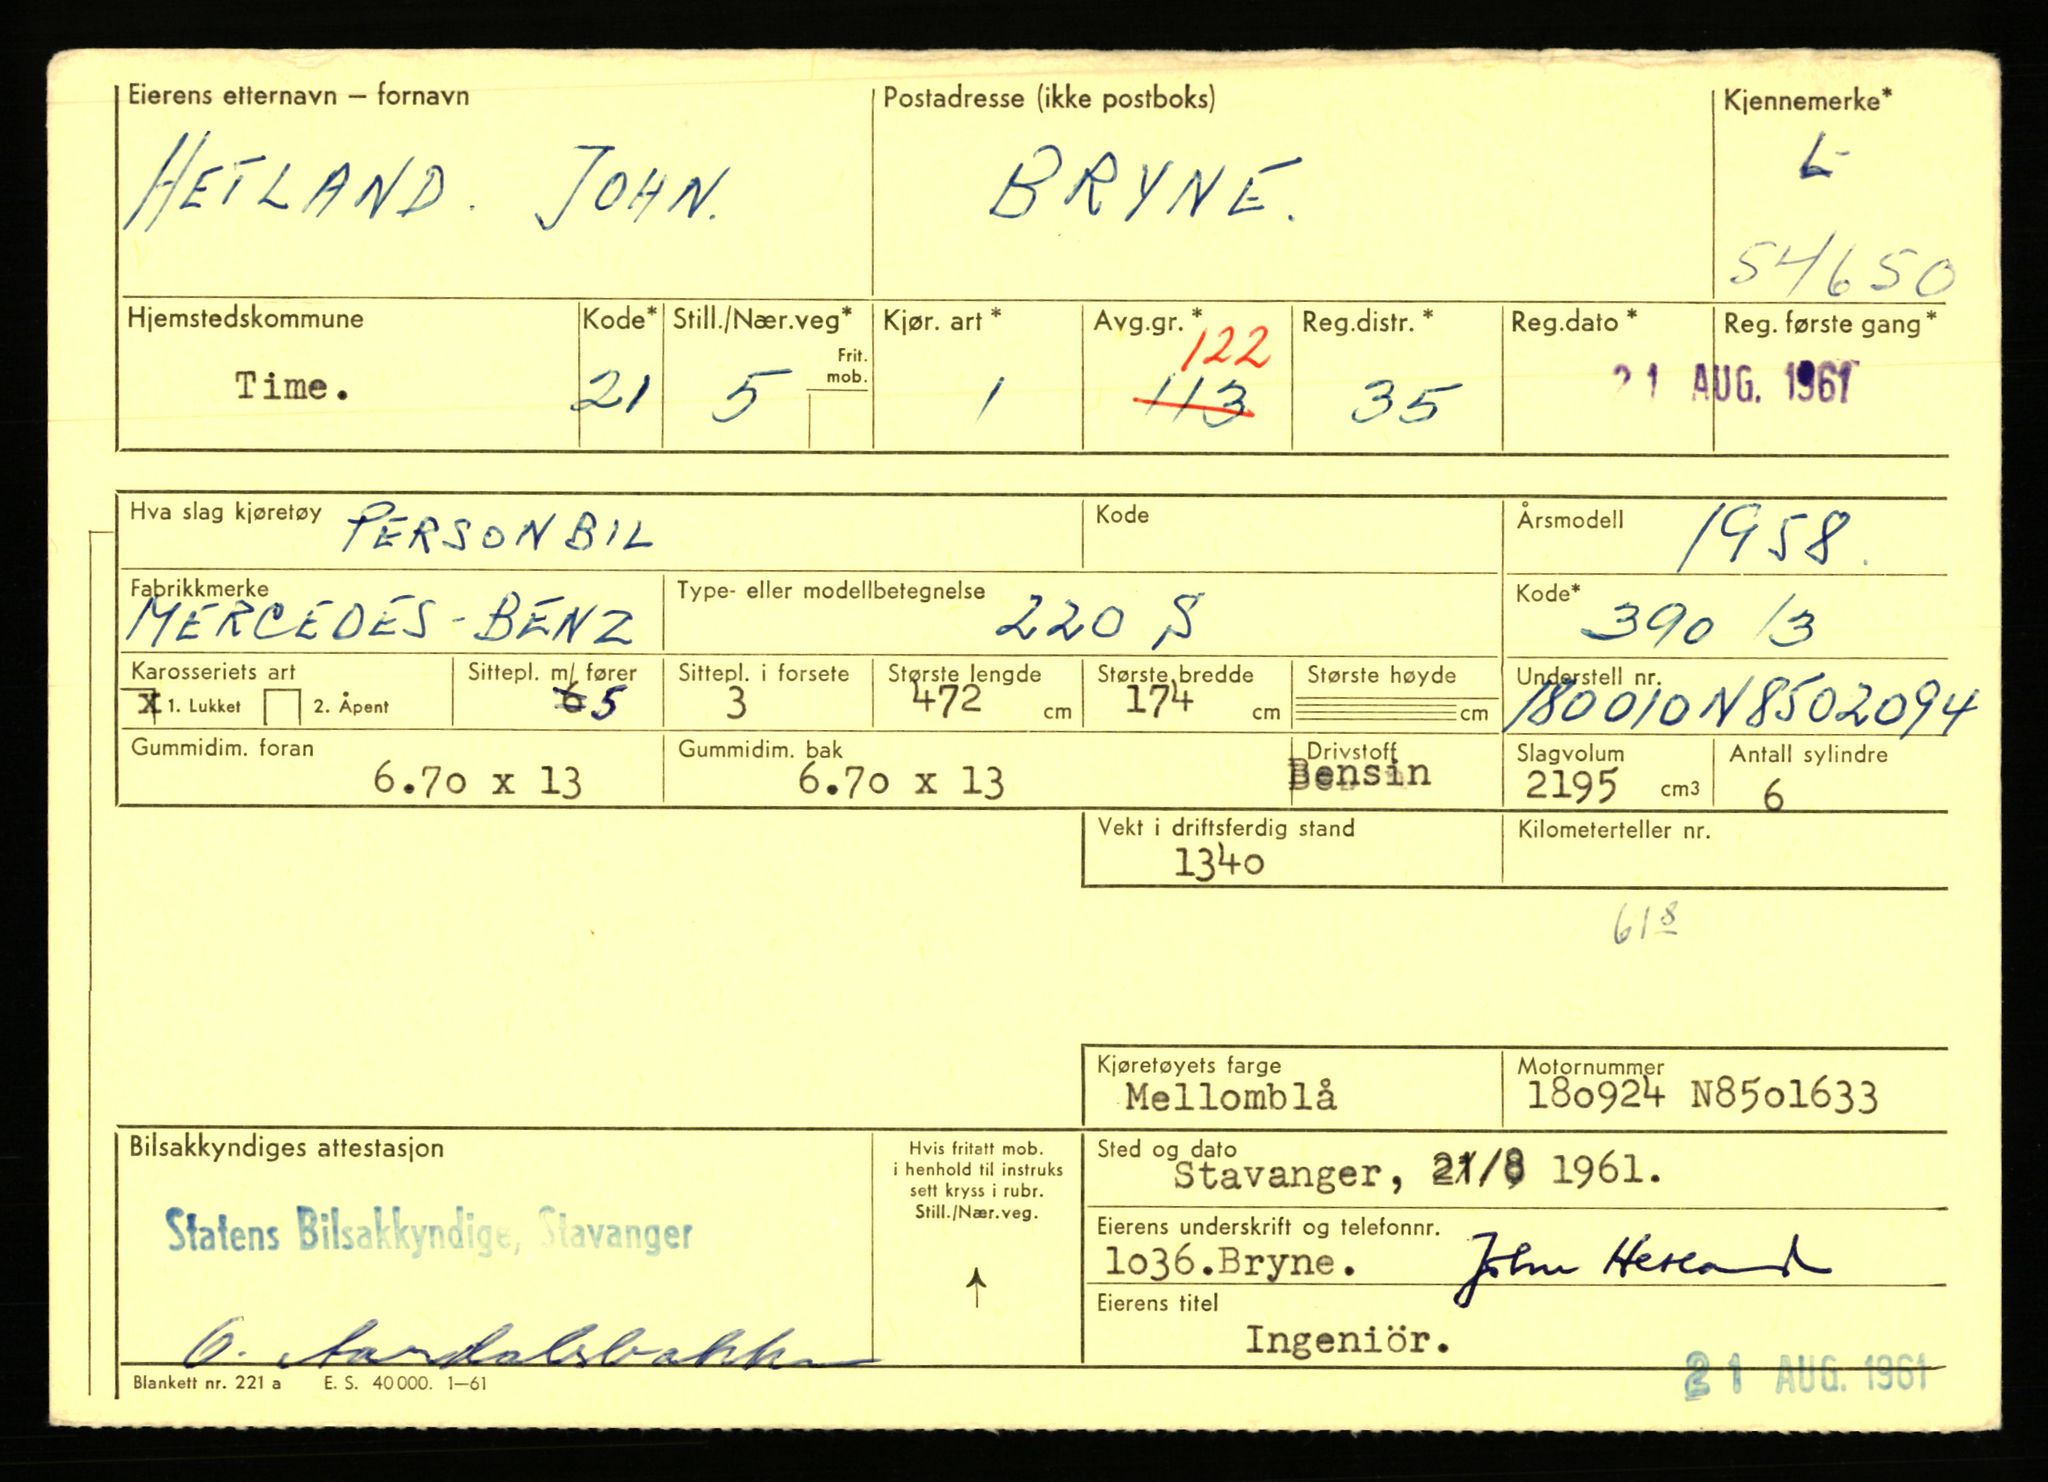 Eierens etternavn – fornavn Postadresse (ikke postboks) Kjennemerke*
HETLAND. JOHN. BRYNE. L-
54650
Hjemstedskommune Kode* Still./Nær.veg* Kjør. art* Avg.gr.* Reg.distr.* Reg.dato* Reg. første gang*
Frit. mob. 122
Time. 21 5 1 113 35 21 AUG. 1961
Hva slag kjøretøy PERSONBIL Kode Årsmodell 1958.
Fabrikkmerke Type- eller modellbetegnelse Kode*
MERCEDES-BENZ 220 S 390 13
Karosseriets art Sittepl. m/ fører Sittepl. i forsete Største lengde Største bredde Største høyde Understell nr.
x 1. Lukket 2. Åpent 6 5 3 472 cm 174 cm cm 180010N8502094
Gummidim. foran Gummidim. bak Drivstoff Slagvolum Antall sylindre
6.70 x 13 6.70 x 13 Bensin 2195 cm3 6
Vekt i driftsferdig stand Kilometerteller nr.
1340
61 8
Kjøretøyets farge Motornummer
Mellomblå 180924 N8501633
Bilsakkyndiges attestasjon Hvis fritatt mob. i henhold til instruks sett kryss i rubr. Still./Nær.veg. Sted og dato
Stavanger, 21/8 1961.
Statens Bilsakkyndige, Stavanger Eierens underskrift og telefonnr.
1036.Bryne. John Hetland
Eierens titel
Ingeniör.
O. Aardalsbakke
21 AUG. 1961
Blankett nr. 221 a E. S. 40 000. 1–61